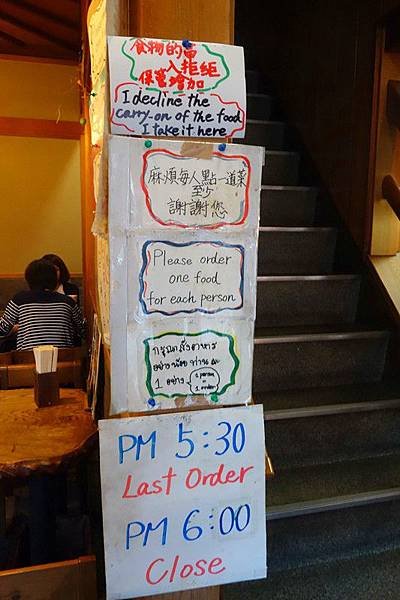 食物的
入拒絕
保管增加
I decline the
carry-on of the food
I take it here
麻煩每人點一道菜
至少
謝謝您
Please order
one food
for each person
กรุณาสั่งอาหาร
อย่างน้อย ท่านละ
1 อย่าง
1 person
=
1 order
PM 5:30
Last Order
PM 6:00
Close